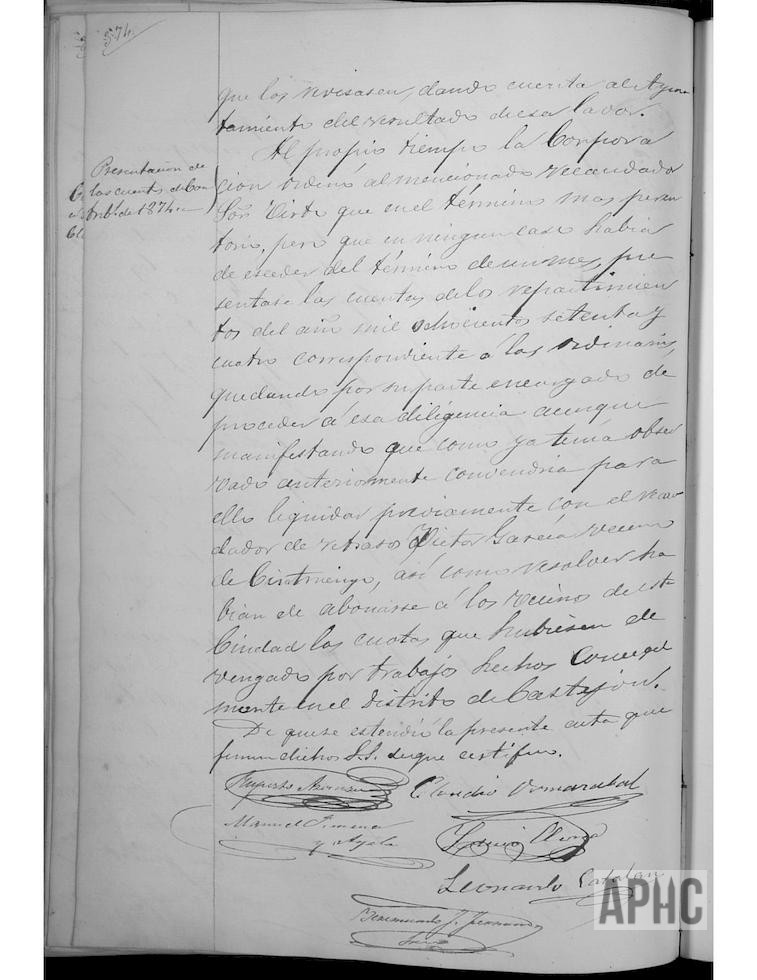 374.
que los revisasen, dando cuenta al Ayun
tamiento del resultado de esa labor.
Presentacion de
las cuentas de Con
trib.s de 1874.
Al propio tiempo la Corpora
cion ordenó al mencionado recaudador
que en el término mas peren
torio, pero que en ningun caso habia
de esceder del término de un mes, pre
sentase las cuentas de los repartimien
tos del año mil ochocientos setenta y
cuatro correspondiente á las ordinarias,
quedando por su parte encargado de
proceder á esa diligencia aunque
manifestando que como ya tenia obser
vado anteriormente convendria para
ello liquidar préviamente con el recau
dador de retrasos Victor Garcia vecino
de Cintruenigo, asi como resolver ha
bian de abonarse á los vecinos de esta
Ciudad las cuotas que hubiesen de
vengado por trabajos hechos
mente en el Distrito de Castejon.
De que se estendió la presente acta que
firman dichos S.S. de que certifico.
Claudio
Manuel Jimenez
y Ayala
Leonardo Catalan
APHC